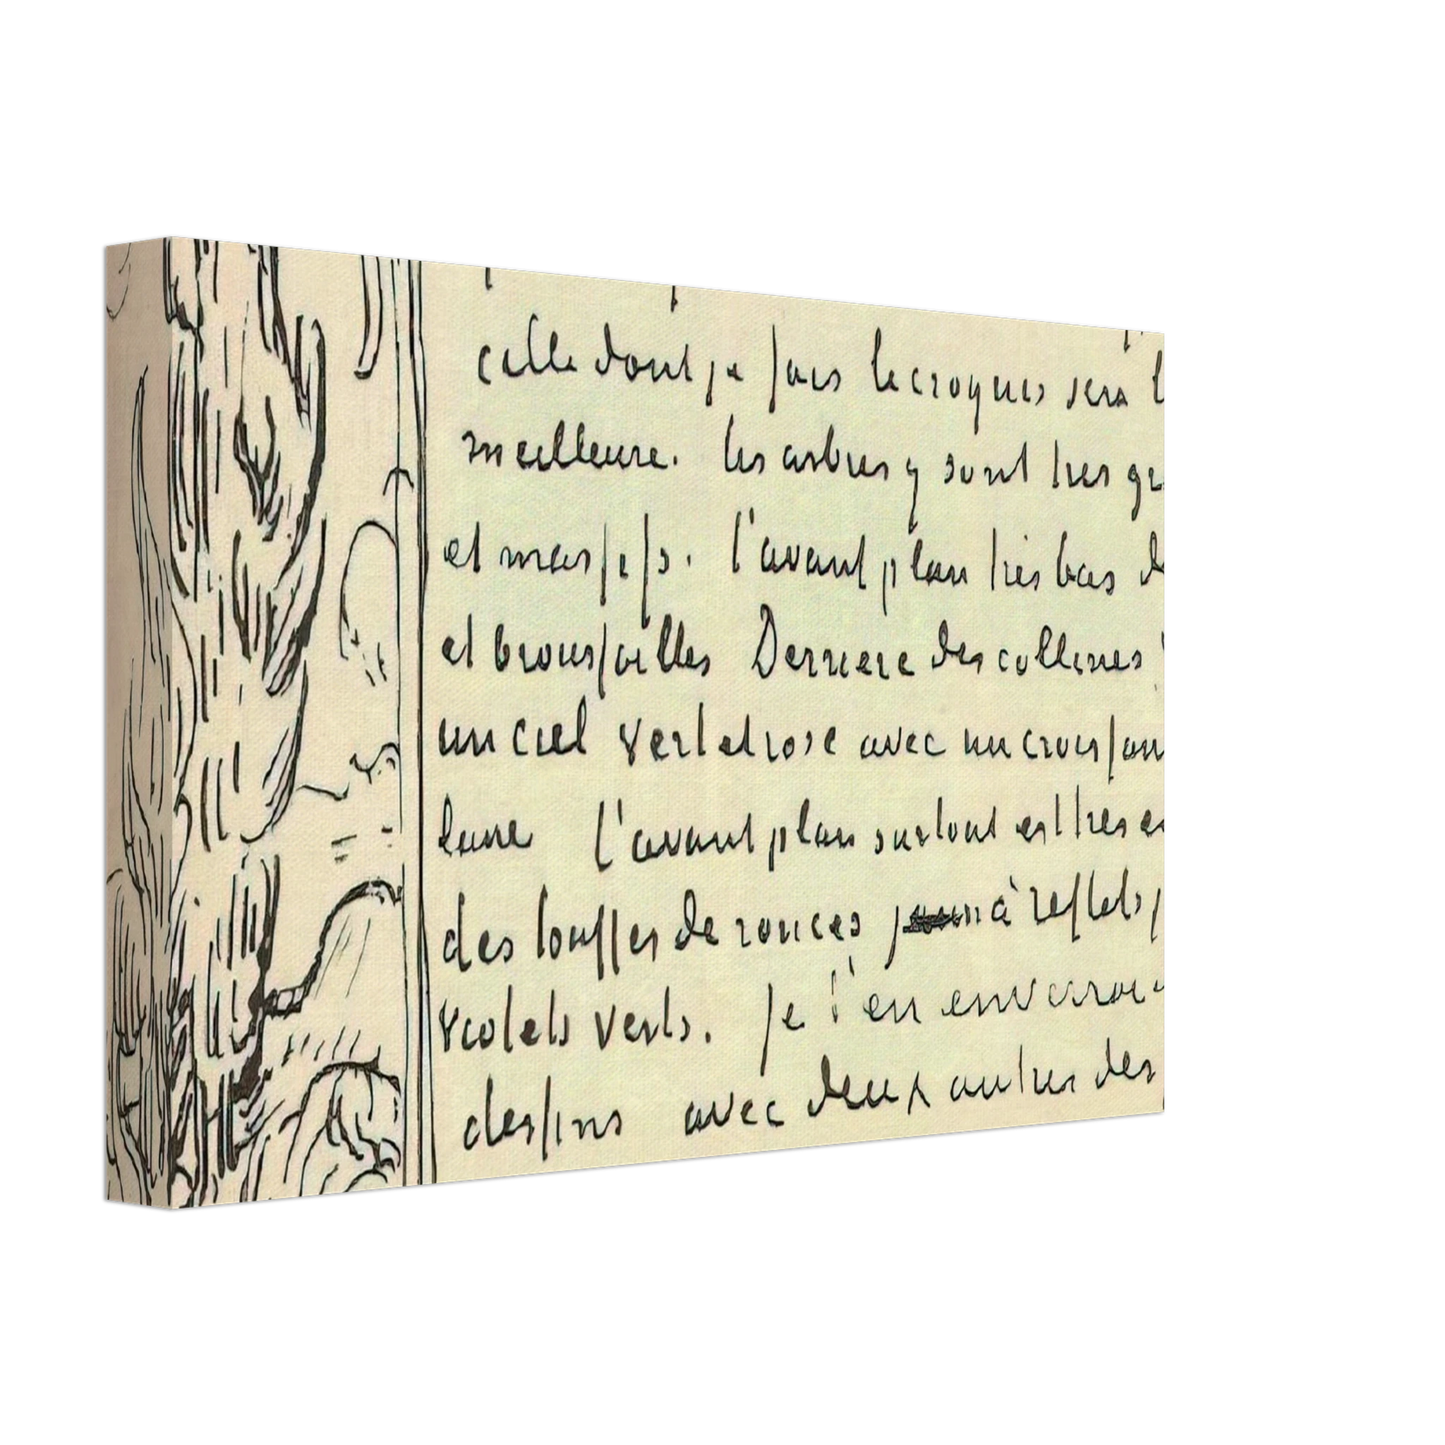 celle dont je fais le croquis sera l
meilleure. les arbres y sont tres gr
et massifs. l'avant plan très bas d
et broussailles Derriere des collines
un ciel vert et rose avec un croissan
lune l'avant plan surtout est tres
des touffes de ronces à reflets
violets verts. Je t'en enverrai
dessins avec deux autres des